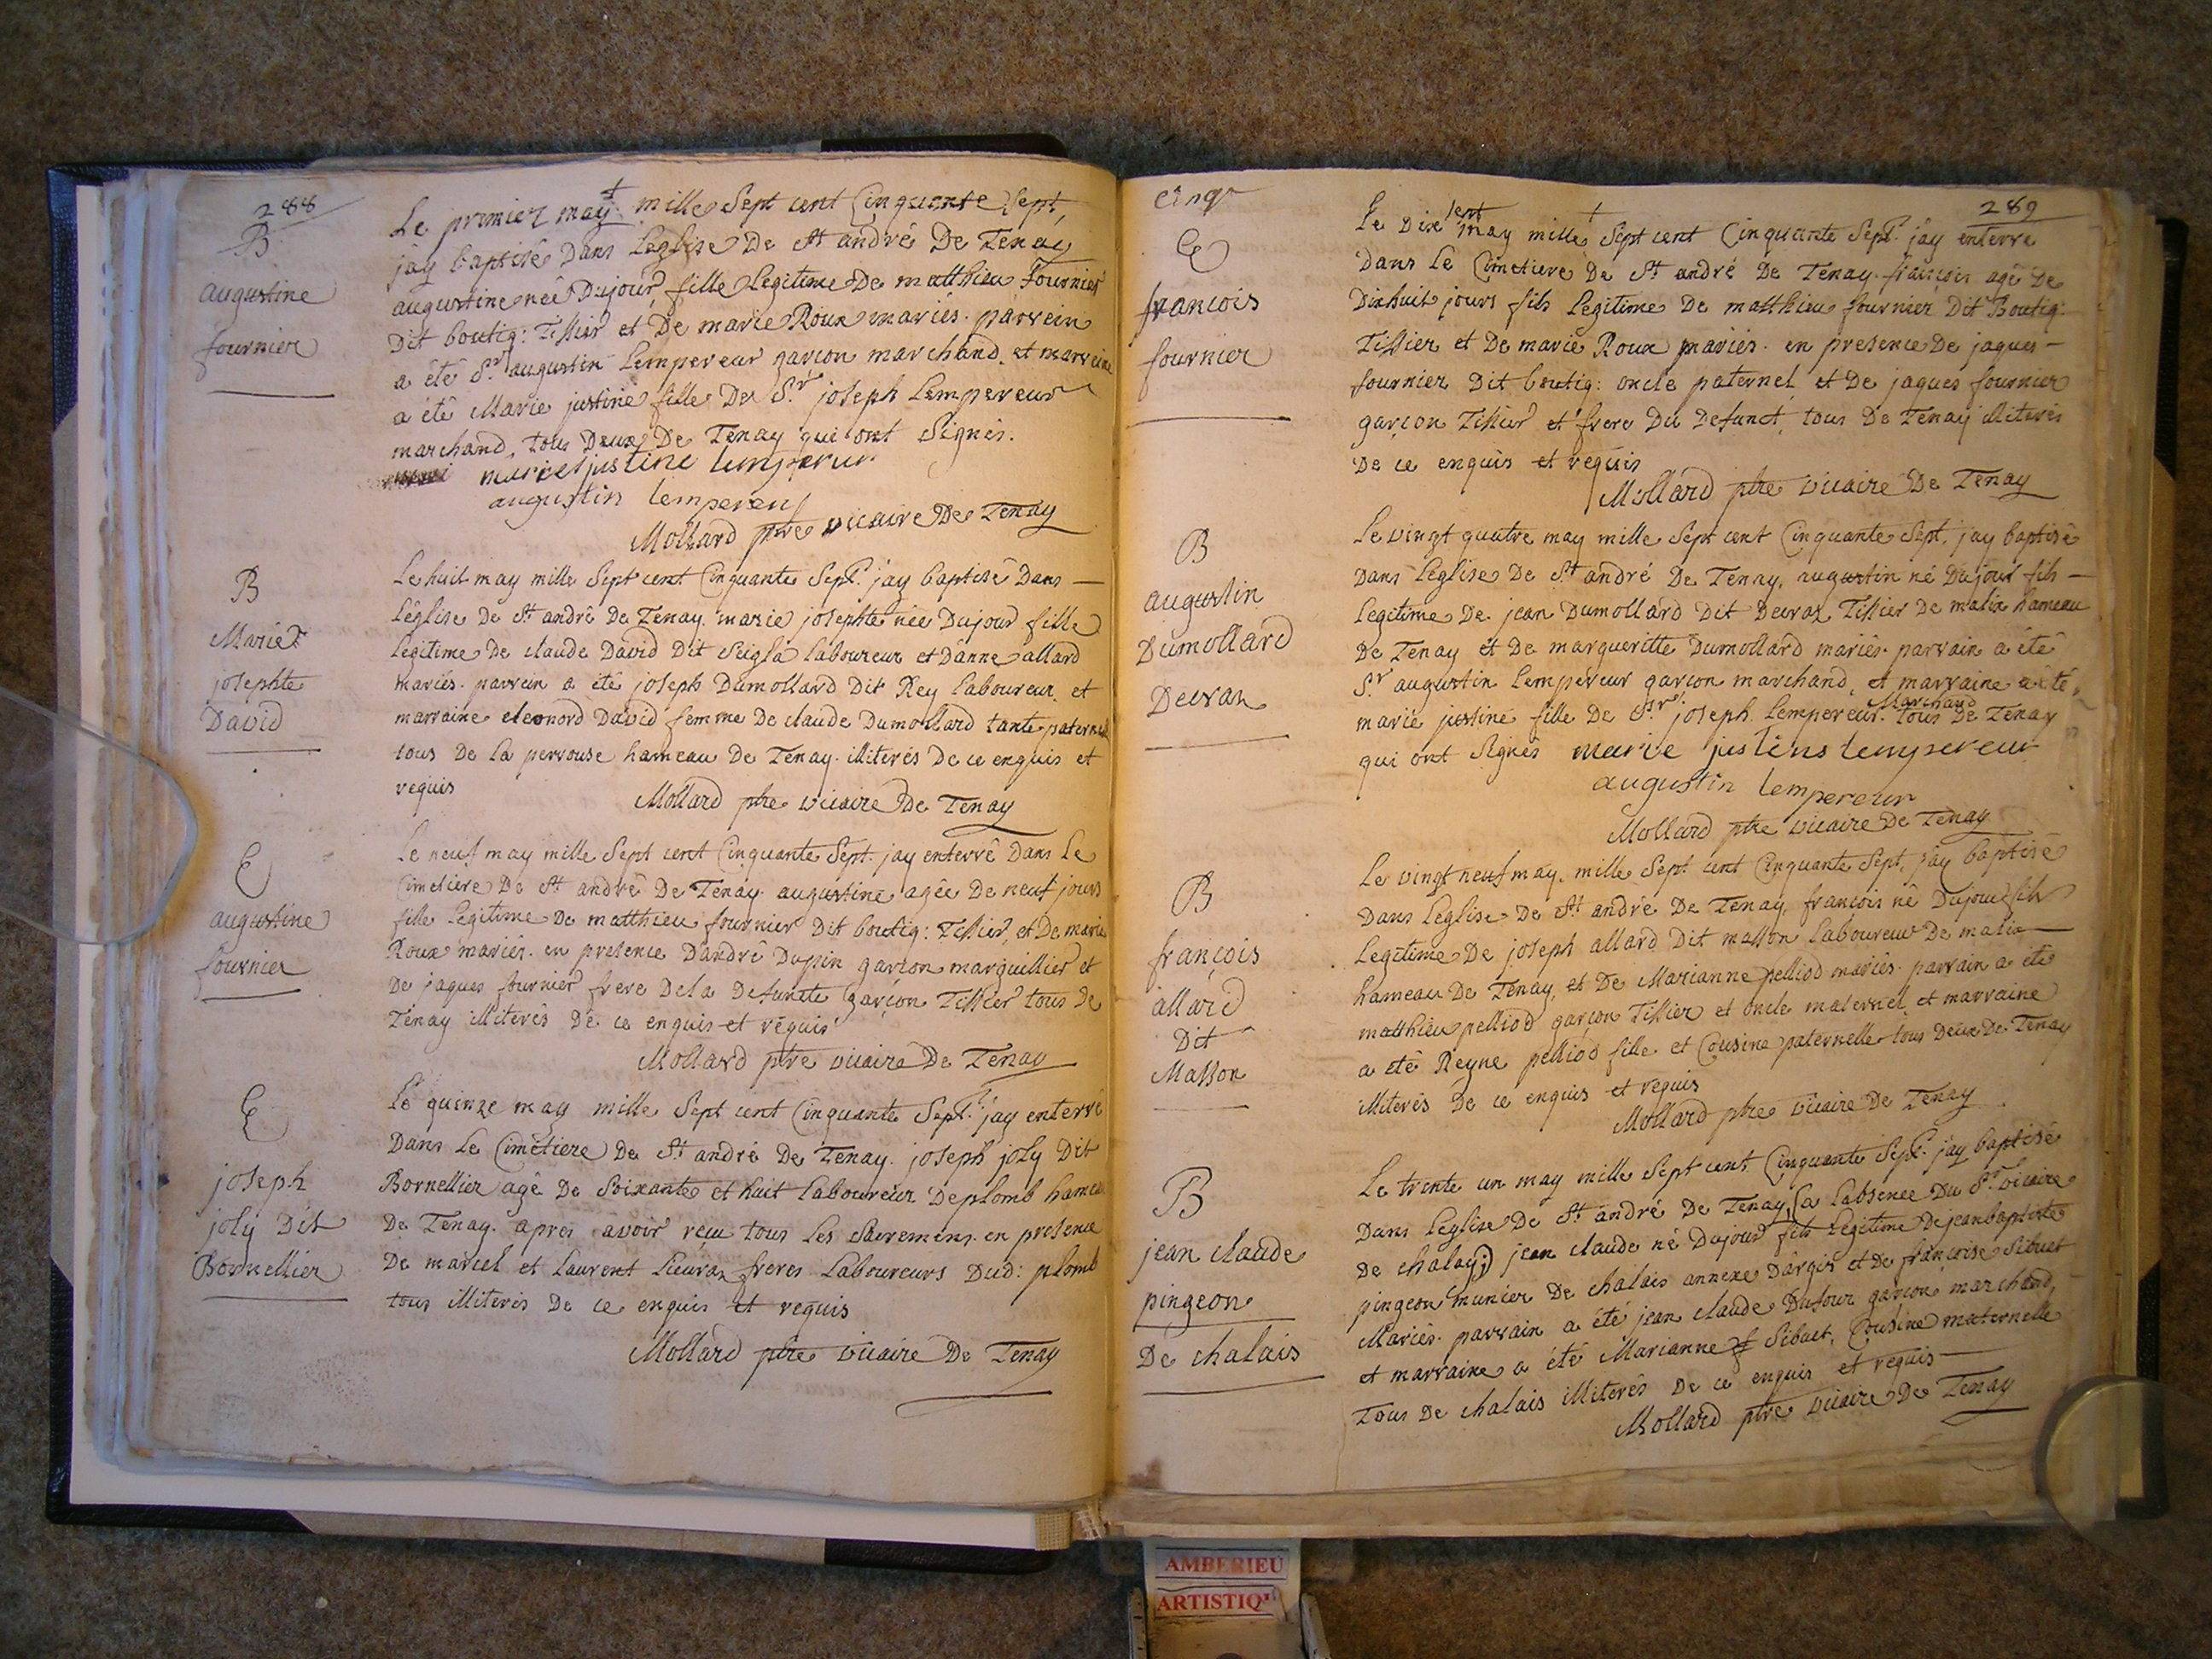 288
B
augustine
fournier
Le premier may mille Sept cent Cinquante Sept,
jay baptisé Dans Leglise De St andré De Tenay
augustine neé Dujour, fille Legitime De matthieu Fournier
Dit boutiq: Tissier et De marie Roux mariés. parrein
a été Sr augustin Lempereur garçon marchand, et marreine
a été Marie justine fille De Sr joseph Lempereur
marchand, tous Deux De Tenay qui ont Signés.
marie justine lempereur
augustin lempereur
Mollard ptre vicaire De Tenay
B
Marie
josephte
David
Le huit may mille Sept cent Cinquante Sept. jay baptisé Dans —
Léglise de St andré De Tenay marie josephte née Dujour fille
Legitime De claude David Dit Seigla laboureur et D'anne allard
mariés. parrein a été joseph Dumollard Dit Rey laboureur, et
marraine eleonord David femme De claude Dumollard tante paternelle
tous De La pervouse hameau De Tenay. illiterés De ce enquis et
requis
Mollard ptre vicaire De Tenay
E
augustine
fournier
Le neuf may mille Sept cent Cinquante Sept. jay enterré Dans Le
Cimetiere De St andré De Tenay augustine agée De neuf jours
fille Legitime De matthieu fournier Dit boutiq: Tissier, et De marie
Roux mariés. en presence D'andré Dupin garçon marguillier et
De jaques fournier frere De La Defuncte garçon Tissier tous De
Tenay illiterés De ce enquis et requis
Mollard ptre vicaire De Tenay
E
joseph
joly Dit
Bornellier
Le quinze may mille Sept cent Cinquante Sept. jay enterré
Dans Le Cimetiere De St andré De Tenay. joseph joly Dit
Bornellier agé De Soixante et huit Laboureur De plomb hameau
De Tenay. apres avoir reçu tous Les Sacremens. en presence
De marcel et Laurent freres Laboureurs Dud: plomb
tous illiterés De ce enquis et requis
Mollard ptre vicaire De Tenay
cinqe
289
E
francois
fournier
Le Dixsept may mille Sept cent Cinquante Sept. jay enterré
Dans Le Cimetiere De St andré De Tenay. françois agé De
Dixhuit jours fils Legitime De matthieu fournier Dit Boutiq:
Tissier et De marie Roux mariés. en presence De jaques —
fournier Dit boutiq: oncle paternel, et De jaques fournier
garçon Tissier et frere Du Defunct, tous De Tenay illiterés
De ce enquis et requis
Mollard ptre vicaire De Tenay
B
augustin
Dumollard
Devraz
Le vingt quatre may mille Sept cent Cinquante Sept, jay baptisé
Dans Leglise De St andré De Tenay, augustin né Dujour fils —
Legitime De jean Dumollard Dit Devraz Tissier De malix hameau
De Tenay et De margueritte Dumollard mariés. parrain a été
Sr augustin Lempereur garcon marchand, et marraine a été
marie justine fille De Sr joseph Lempereur Marchand tous De Tenay
qui ont Signés marie justine lempereur
augustin lempereur
Mollard ptre vicaire De Tenay
B
françois
allard
Dit
Masson
Le vingt neuf may, mille Sept cent Cinquante Sept, jay baptisé
Dans Leglise De St andré De Tenay, francois né Dujour fils
Legitime De joseph allard Dit masson Laboureur De malix —
hameau De Tenay, et De Marianne pelliod mariés. parrain a été
matthieu pelliod garçon Tissier et oncle maternel, et marraine
a été Reyne pelliod fille et Cousine paternelle tous Deux De Tenay
illiterés De ce enquis et requis
Mollard ptre vicaire De Tenay
B
jean claude
pingeon
De chalais
Le trente un may mille Sept cent Cinquante Sept. jay baptisé
Dans Leglise De St andré De Tenay, (a Labsence Du Sr vicaire
De chalay;) jean claude né Dujour fils Legitime De jean baptiste
pingeon munier De chalais annexe D'argis et De françoise Sibuet
Mariés. parrain a été jean claude Dufour garçon marchand,
et marraine a été Marianne Sibuet, Cousine maternelle
Tous De chalais illiterés De ce enquis et requis —
Mollard ptre vicaire De Tenay
AMBERIEU
ARTISTIQ